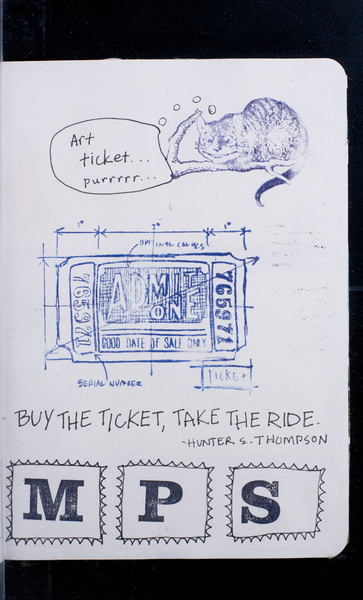 Art
ticket...
purrrrr...
1" 2" 1"
OPTIONAL COLORS
ADMIT
ONE
GOOD DATE OF SALE ONLY
Y65971
SERIAL NUMBER
TICKET
BUY THE TICKET, TAKE THE RIDE.
-HUNTER S. THOMPSON
M P S